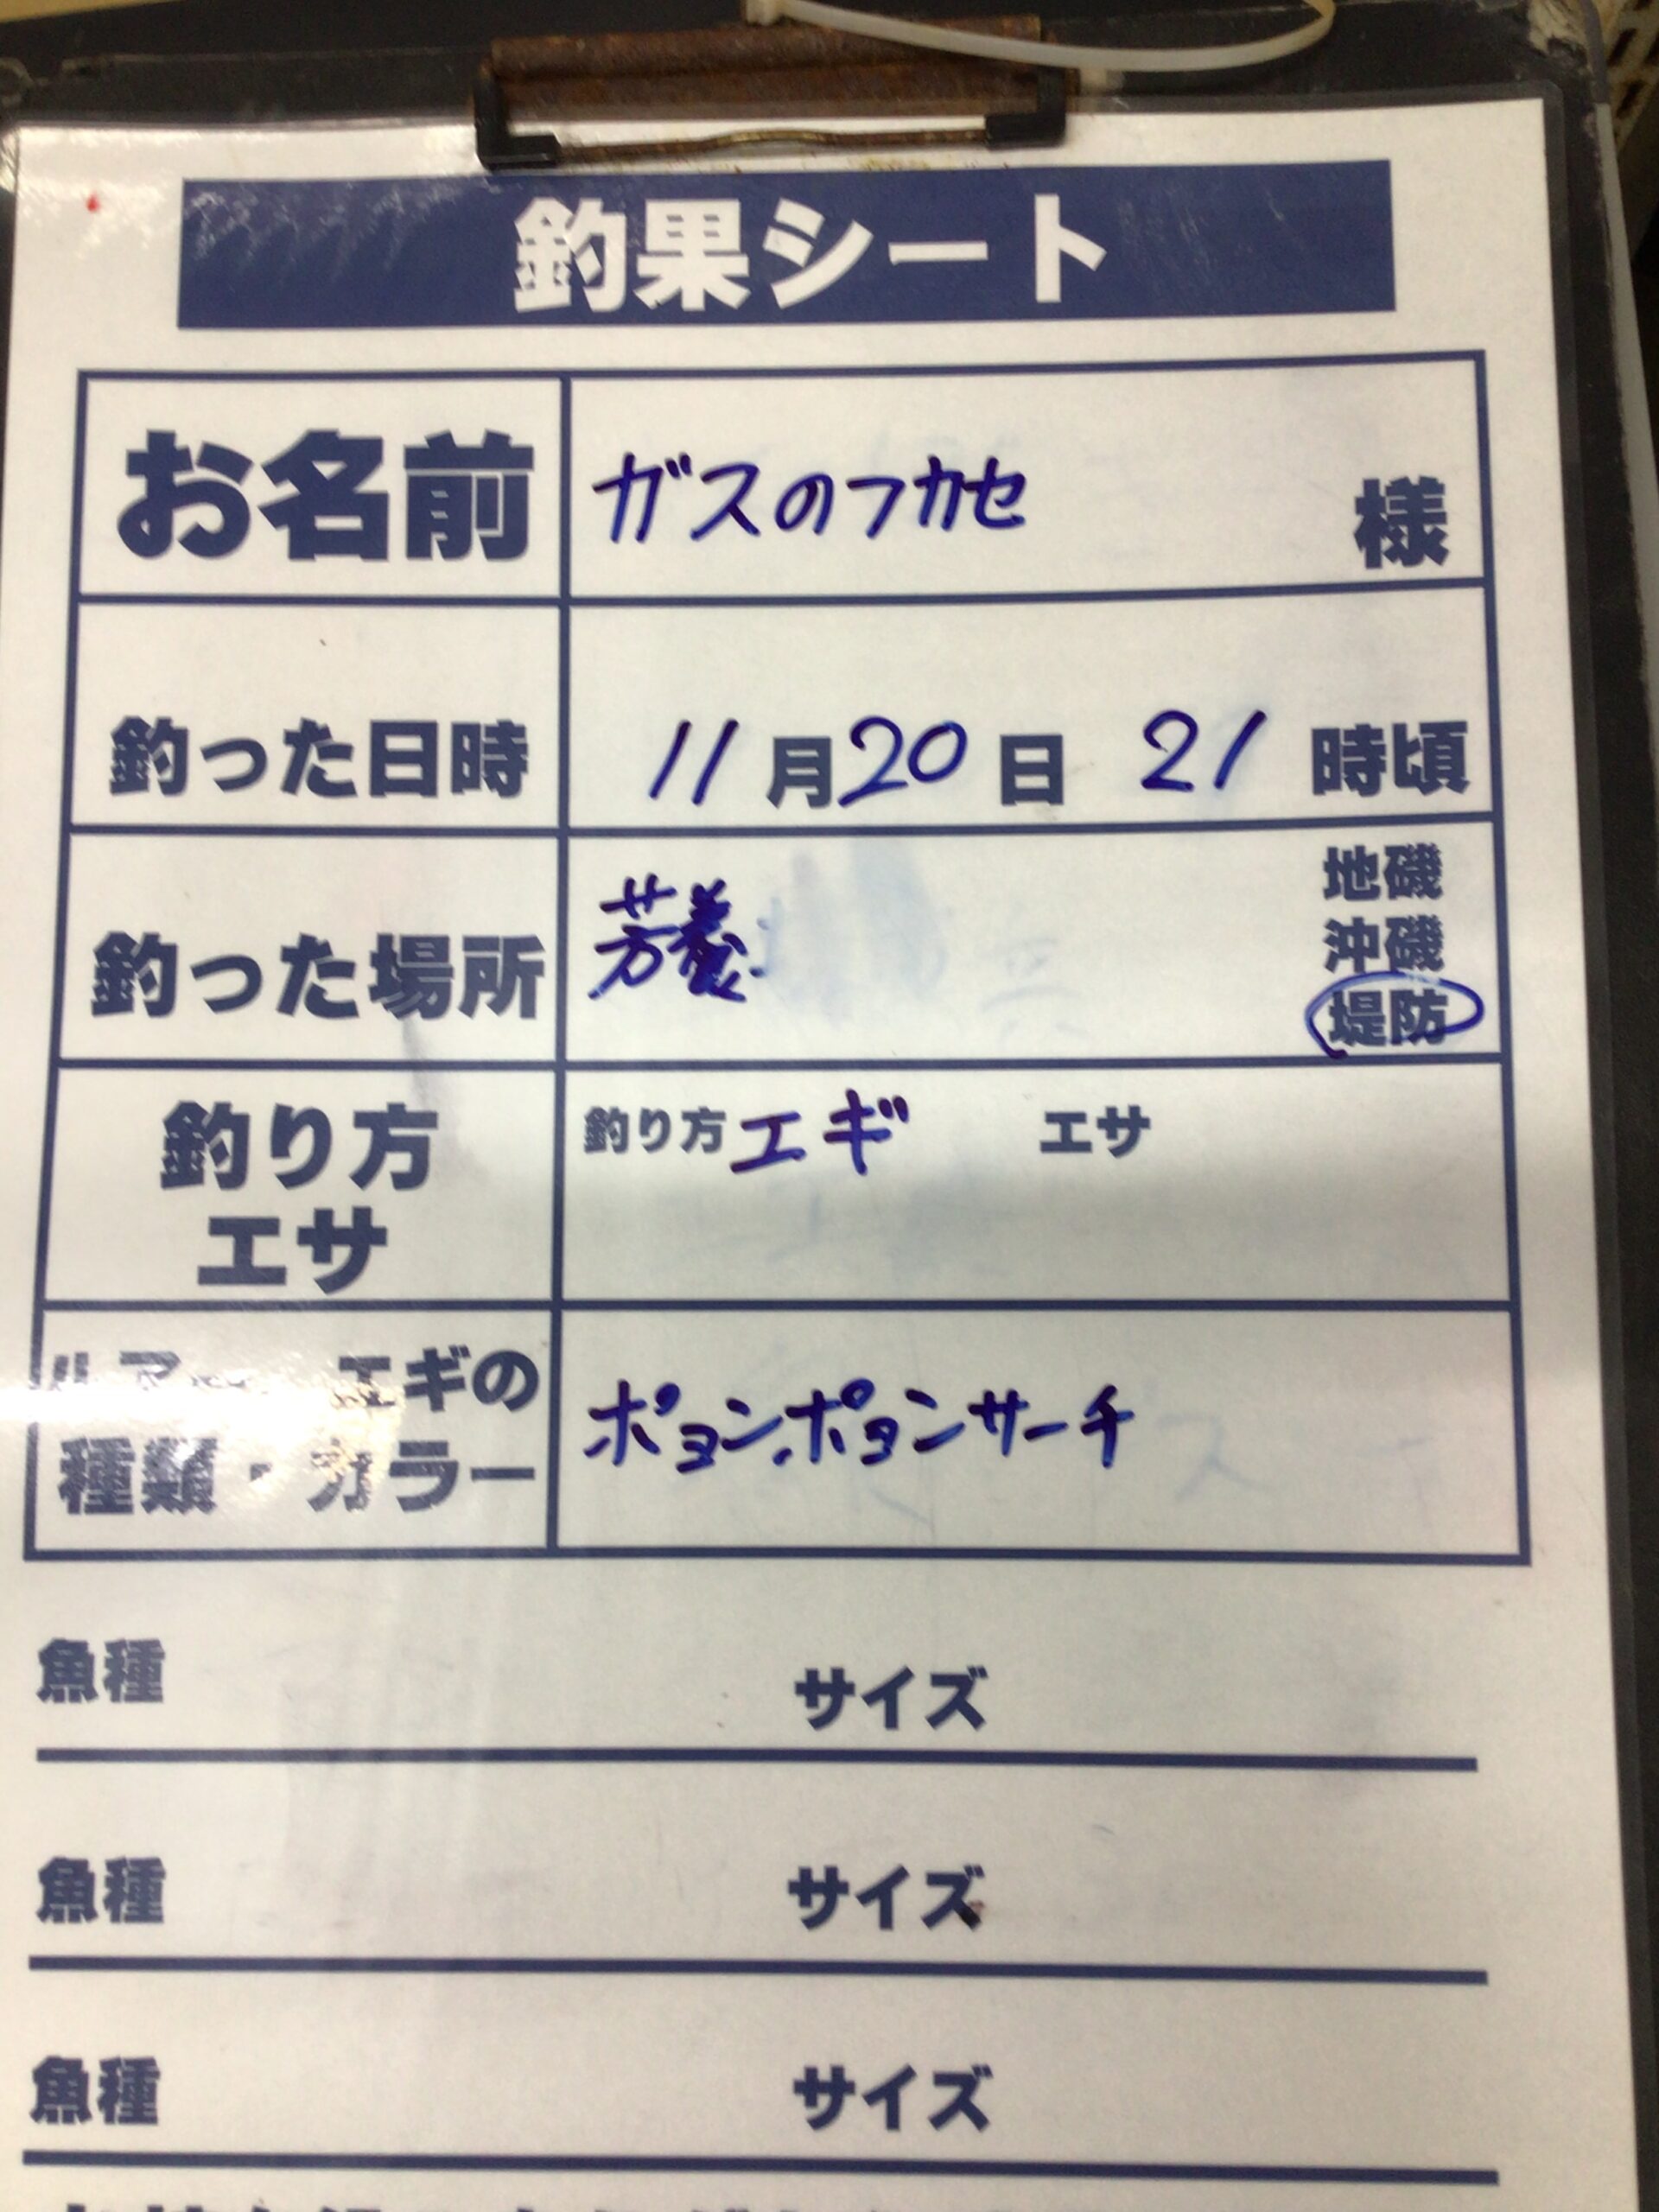 釣果シート
お名前 ガスのフカセ 様
釣った日時 11月20日 21時頃
釣った場所 芳養
地磯
沖磯
堤防
釣り方 エサ
釣り方 エギ エサ
ルアー・エギの
種類・カラー
ポヨン、ポヨンサーチ
魚種 サイズ
魚種 サイズ
魚種 サイズ